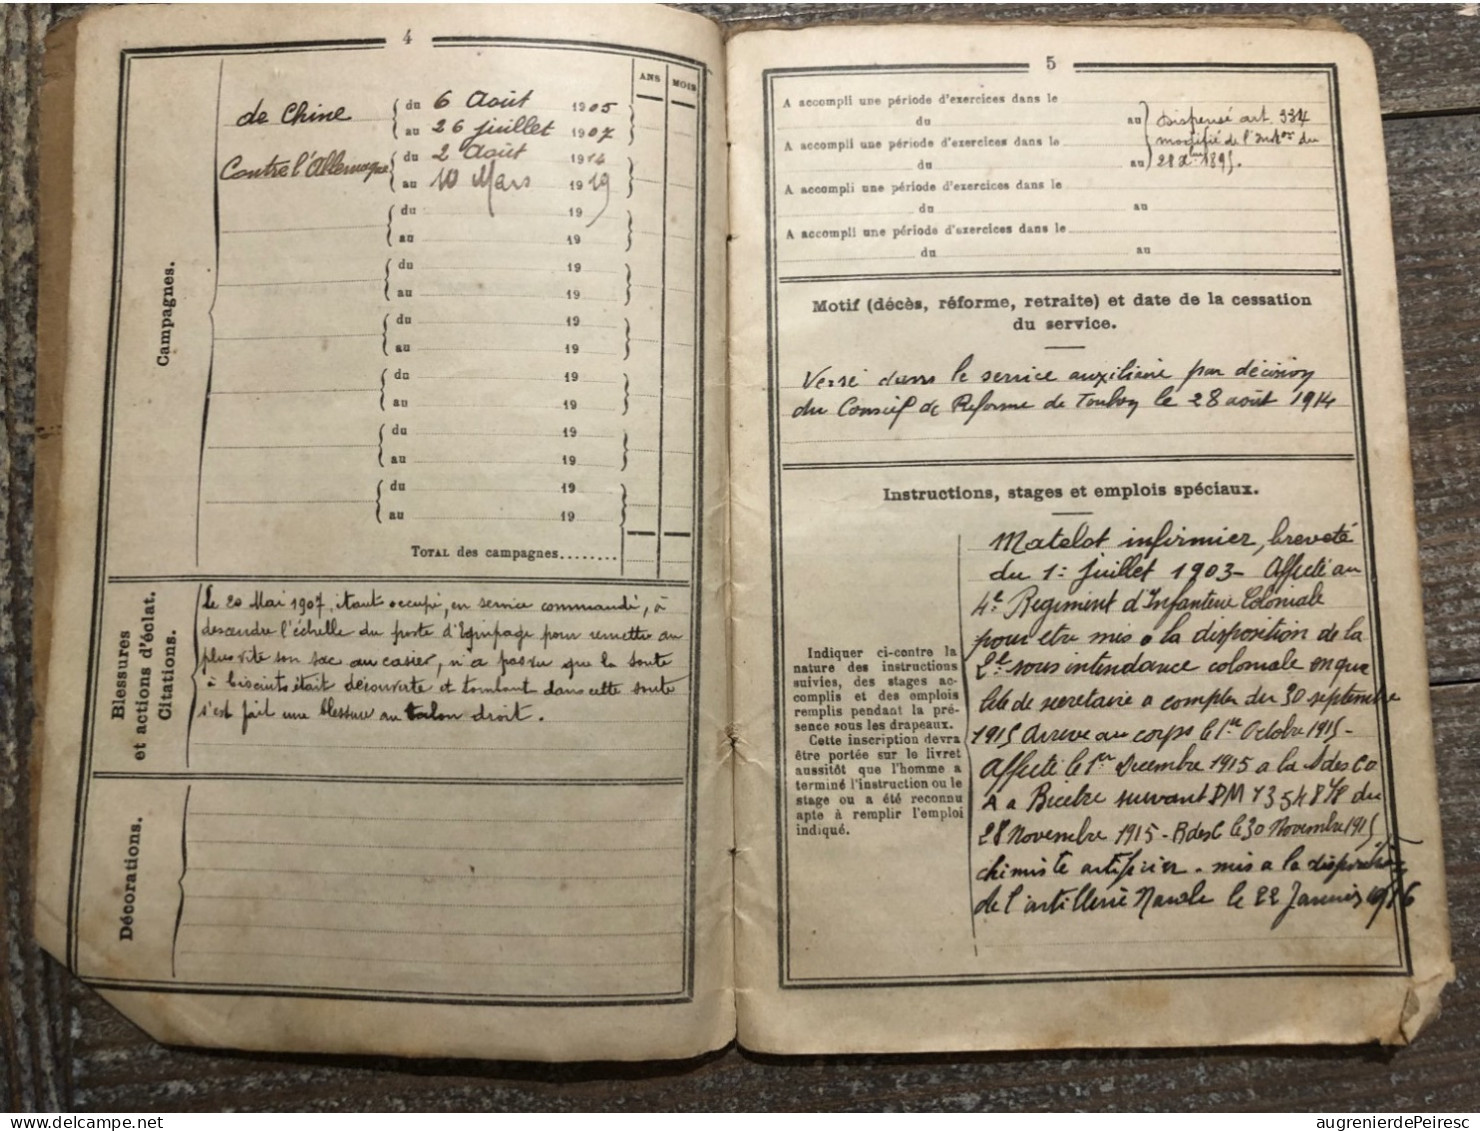 4
ANS MOIS
de Chine du 6 Août 1905
au 26 juillet 1907
Contre l'Allemagne du 2 Août 1914
au 10 Mars 1919
du 19
au 19
du 19
au 19
du 19
au 19
du 19
au 19
du 19
au 19
du 19
au 19
TOTAL des campagnes........
Campagnes.
Blessures
et actions d'éclat.
Citations.
Le 20 Mai 1907, étant occupé, en service commandé, à
descendre l'échelle du poste d'Equipage pour remettre au
plus vite son sac au casier, n'a pas vu que la soute
à biscuits était découverte et tombant dans cette soute
s'est fait une blessure au talon droit.
Décorations.
5
A accompli une période d'exercices dans le
du au
A accompli une période d'exercices dans le
du au
Dispensé art. 334
modifié de l'Inst.on du
28 Xbre 1895.
A accompli une période d'exercices dans le
du au
A accompli une période d'exercices dans le
du au
Motif (décès, réforme, retraite) et date de la cessation
du service.
Versé dans le service auxiliaire par décision
du Conseil de Réforme de Toulon le 28 août 1914
Instructions, stages et emplois spéciaux.
Indiquer ci-contre la
nature des instructions
suivies, des stages ac-
complis et des emplois
remplis pendant la pré-
sence sous les drapeaux.
Cette inscription devra
être portée sur le livret
aussitôt que l'homme a
terminé l'instruction ou le
stage ou a été reconnu
apte à remplir l'emploi
indiqué.
Matelot infirmier, breveté
du 1er Juillet 1903 - Affecté au
4e Regiment d'Infanterie Coloniale
pour etre mis a la disposition de la
2e sous intendance coloniale en qua
lité de secretaire a compter du 30 septembre
1915 Arrivé au corps le 1er Octobre 1915 -
Affecté le 1er Decembre 1915 a la S des Co
A a Bicetre suivant DM 13548 1/8 du
28 Novembre 1915 - R des C le 30 Novembre 1915
chimiste artificier. mis a la disposition
de l'artillerie Navale le 22 Janvier 1916
augrenierdePeiresc